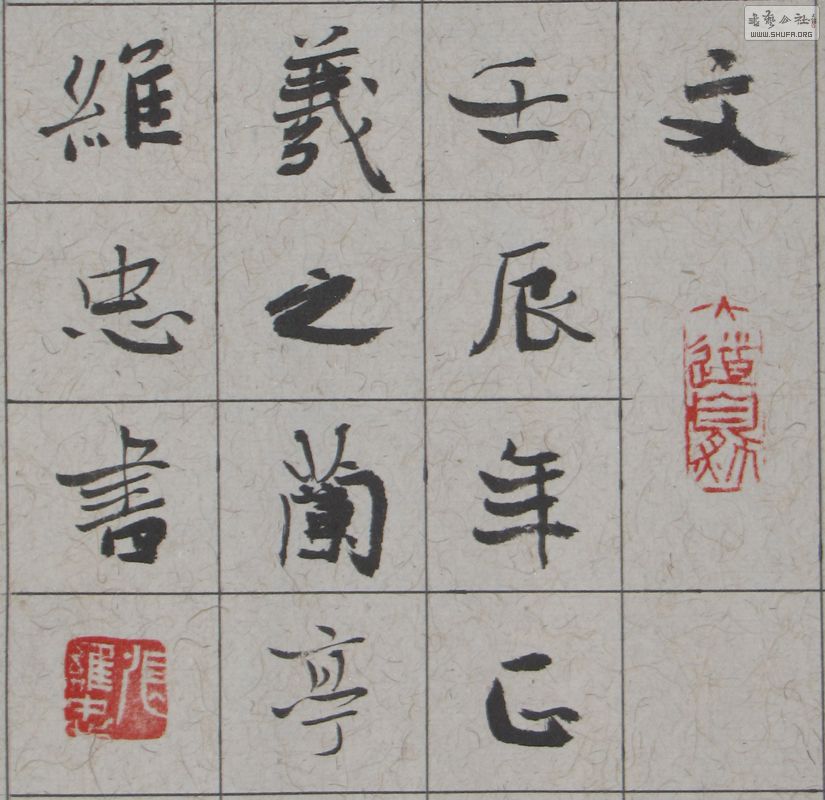 文
壬辰年正
羲之蘭亭
維忠書
大道自然
張維忠
書藝公社
WWW.SHUFA.ORG